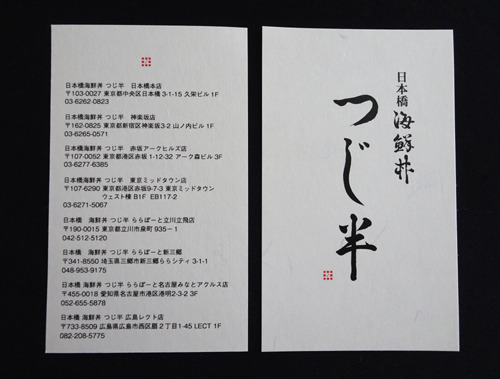 日本橋海鮮丼 つじ半　日本橋本店
〒103-0027 東京都中央区日本橋 3-1-15 久栄ビル 1F
03-6262-0823
日本橋海鮮丼 つじ半　神楽坂店
〒162-0825 東京都新宿区神楽坂3-2 山ノ内ビル 1F
03-6265-0571
日本橋海鮮丼 つじ半　赤坂アークヒルズ店
〒107-0052 東京都港区赤坂 1-12-32 アーク森ビル 3F
03-6277-6385
日本橋海鮮丼 つじ半　東京ミッドタウン店
〒107-6290 東京都港区赤坂9-7-3 東京ミッドタウン
ウェスト棟 B1F EB117-2
03-6271-5067
日本橋　海鮮丼 つじ半 ららぽーと立川立飛店
〒190-0015 東京都立川市泉町 935－1
042-512-5120
日本橋 海鮮丼 つじ半 ららぽーと新三郷
〒341-8550 埼玉県三郷市新三郷ららシティ 3-1-1
048-953-9175
日本橋 海鮮丼 つじ半 ららぽーと名古屋みなとアクルス店
〒455-0018 愛知県名古屋市港区港明2-3-2 3F
052-655-5878
日本橋 海鮮丼 つじ半 広島レクト店
〒733-8509 広島県広島市西区扇２丁目1-45 LECT 1F
082-208-5775
日本橋 海鮮丼
つじ半